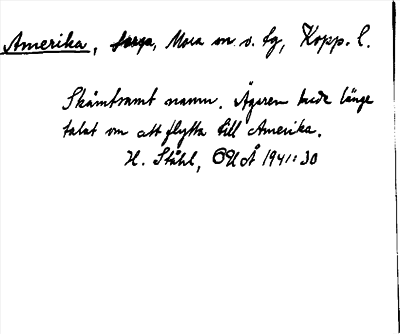 Amerika, torp, Mora sn o. tg, Kopp. l.
Skämtsamt namn. Ägaren hade länge
talat om att flytta till Amerika.
H. Ståhl, OUÅ 1941: 30